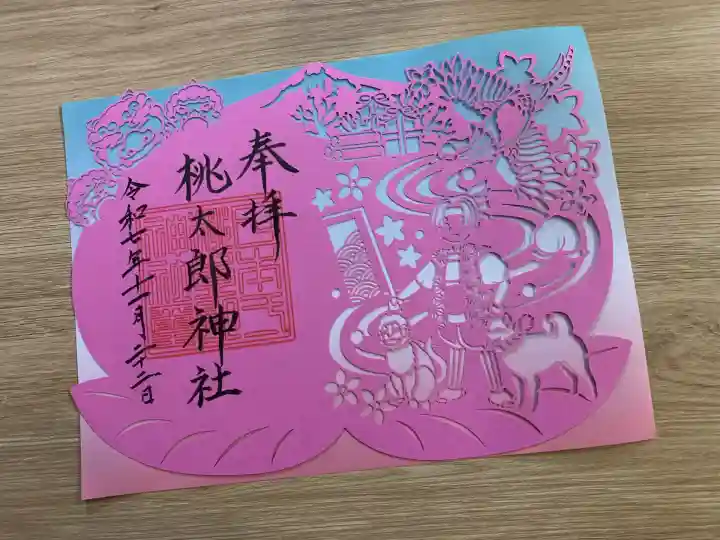 奉拝
桃太郎神社
令和七年十一月二十二日